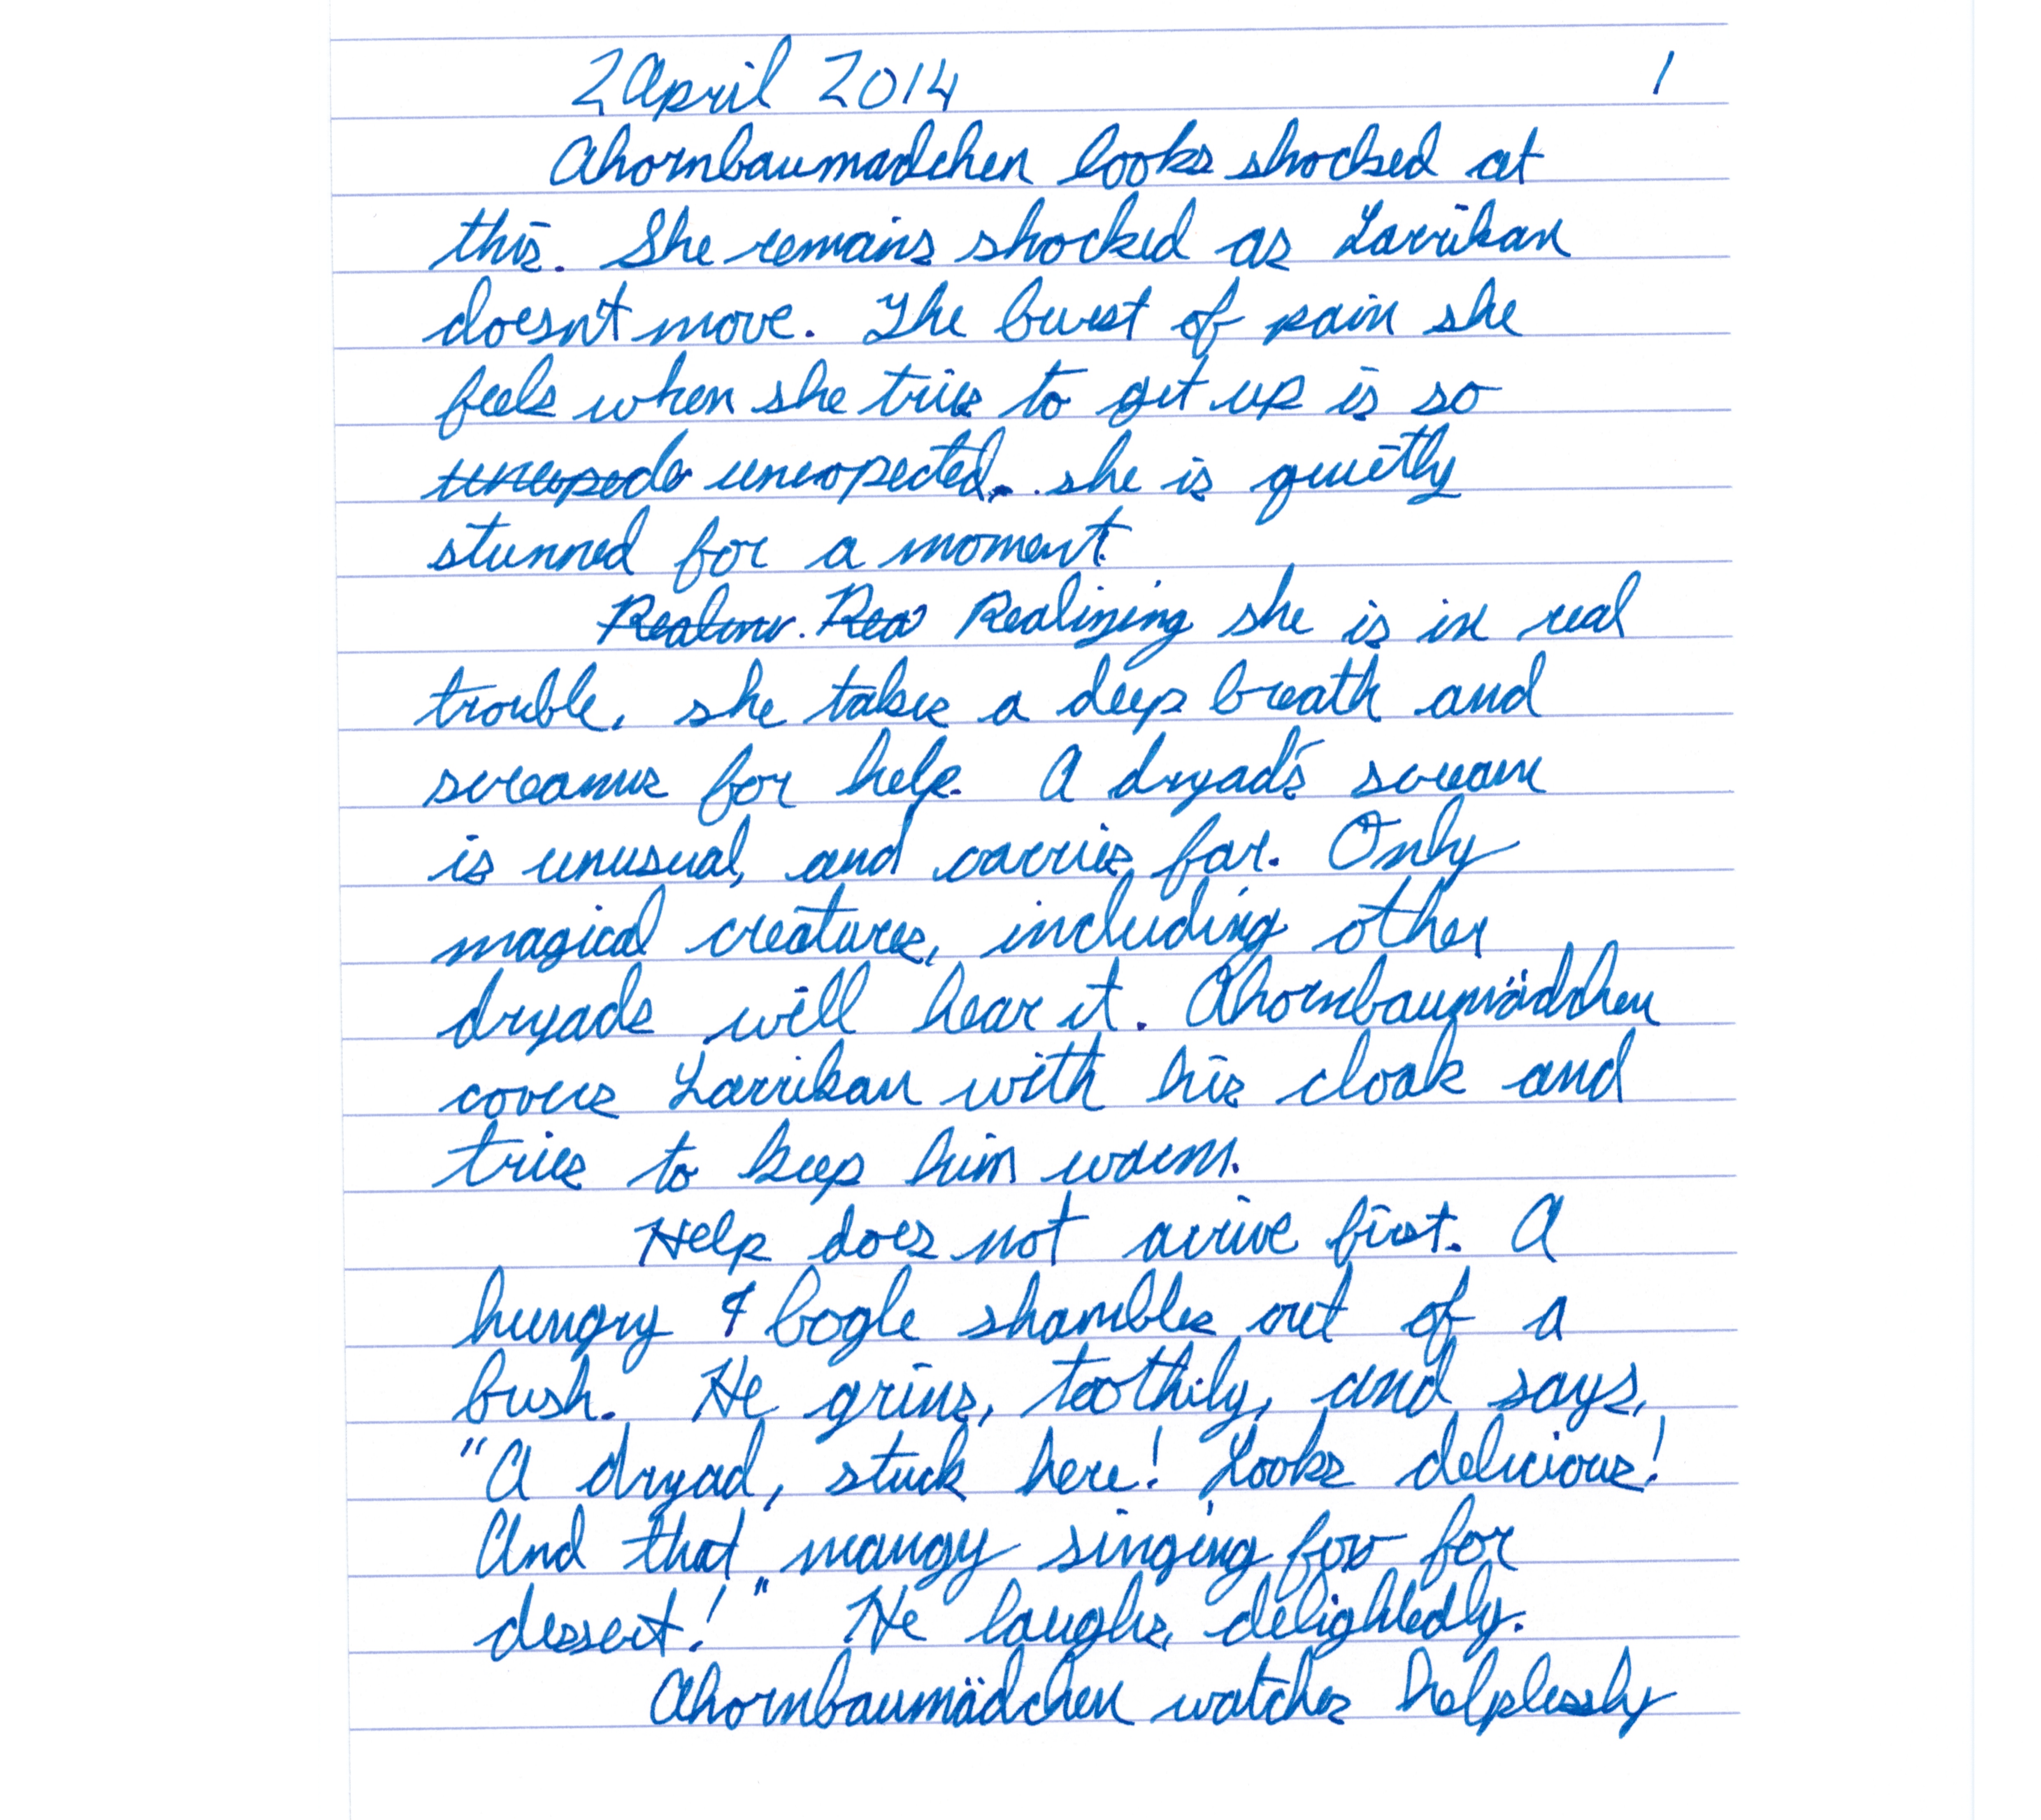 2 April 2014 1
Ahornbaumadchen looks shocked at
this. She remains shocked as Larrikan
doesn't move. The burst of pain she
feels when she tries to get up is so
unexpected. she is quietly
stunned for a moment.
Realizing she is in real
trouble, she takes a deep breath and
screams for help. A dryad's scream
is unusual, and carries far. Only
magical creatures, including other
dryads will hear it. Ahornbaumädchen
covers Larrikan with his cloak and
tries to keep him warm.
Help does not arrive first. A
hungry bogle shambles out of a
bush. He grins, toothily, and says,
"A dryad, stuck here! Looks delicious!
And that mangy singing fox for
dessert!" He laughs, delightedly.
Ahornbaumädchen watches helplessly